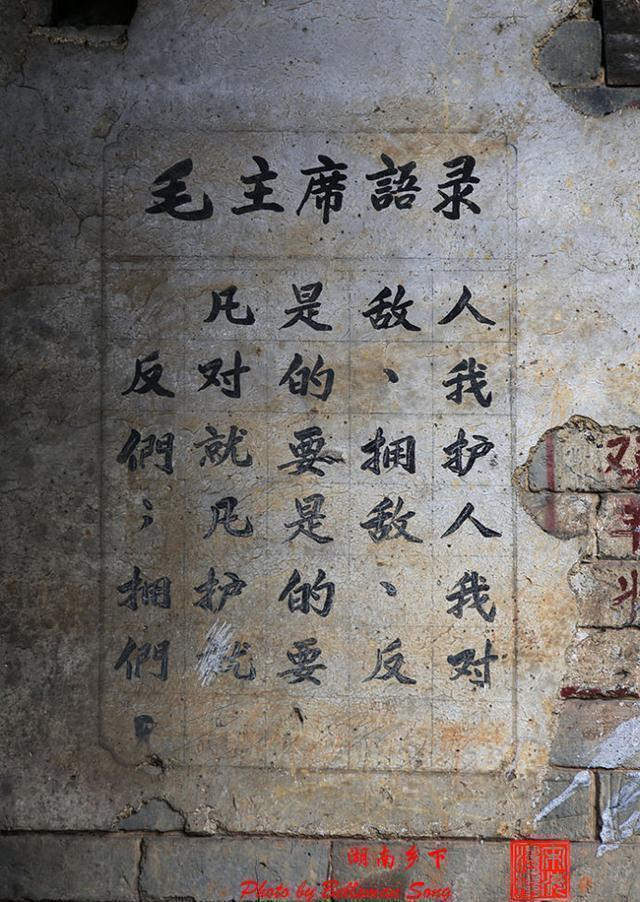 毛主席語录
凡是敌人
反对的、我
們就要拥护
；凡是敌人
拥护的、我
們就要反对
。
湖南乡下
Photo by Song